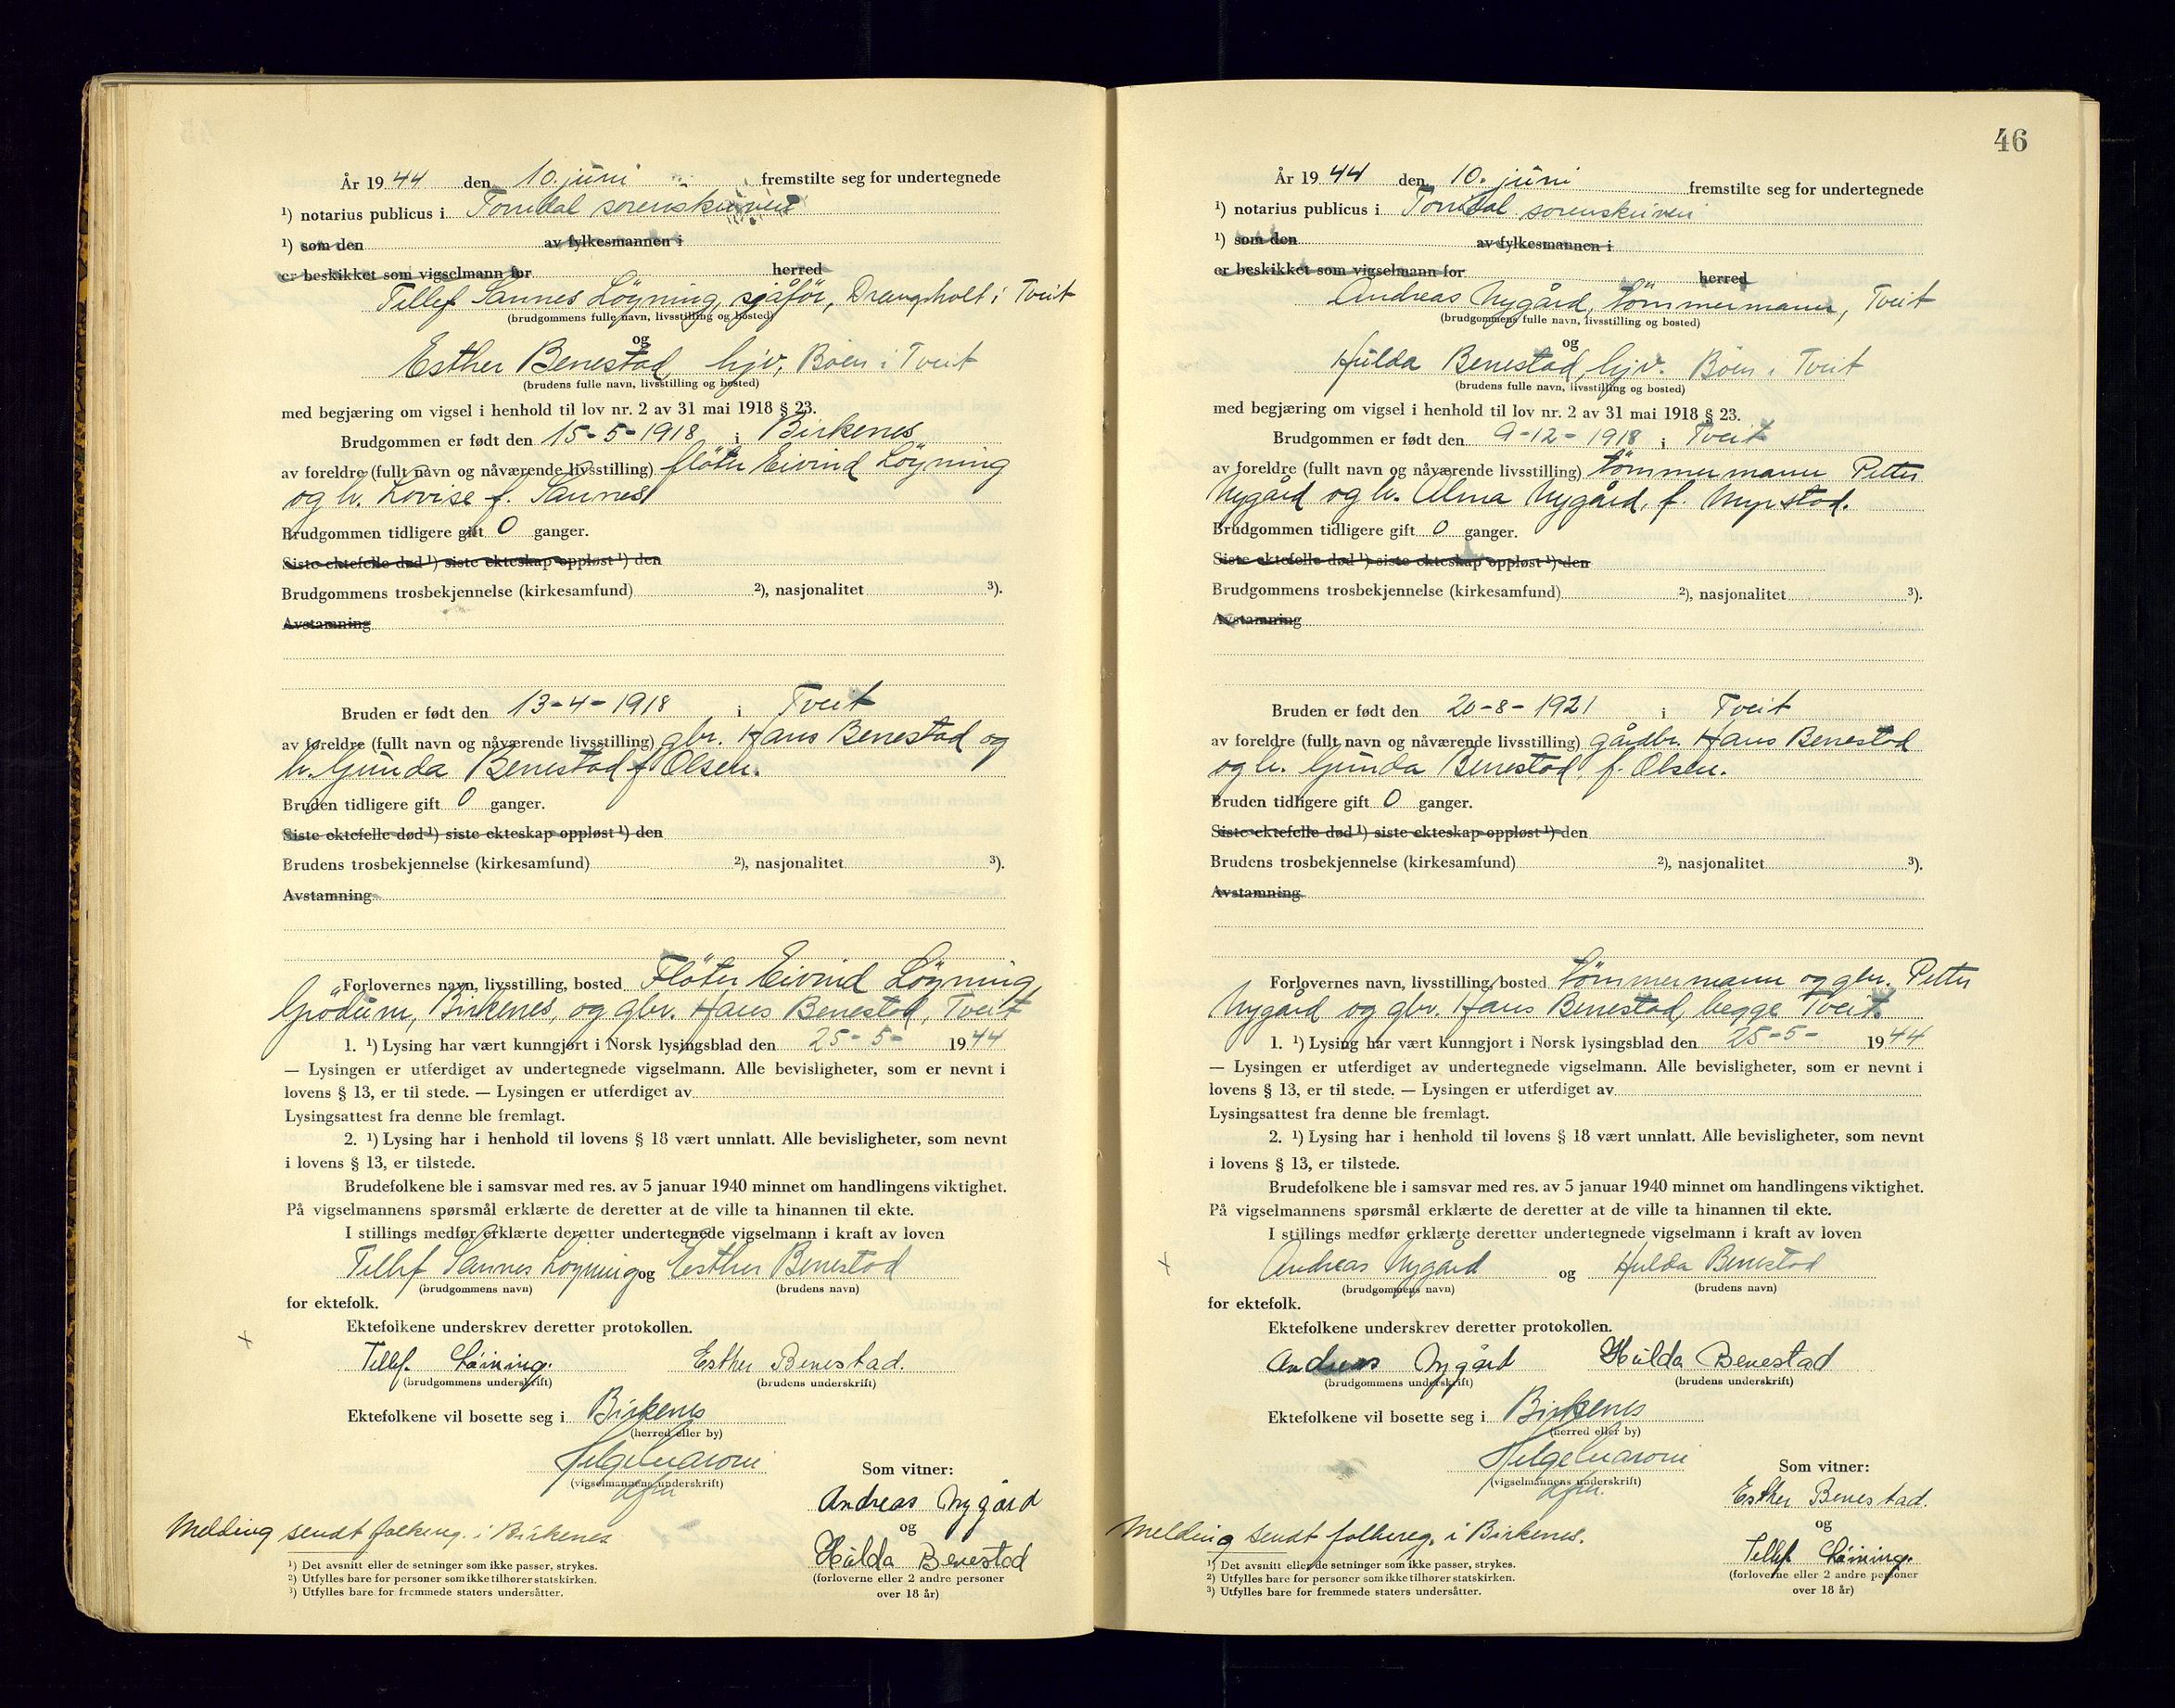 År 1944 den 10. juni fremstilte seg for undertegnede
¹) notarius publicus i Torridal sorenskriveri
¹) som den av fylkesmannen i
er beskikket som vigselmann for herred
Tellef Sannes Löyning, sjåför, Drangsholt i Tveit
(brudgommens fulle navn, livsstilling og bosted)
og
Esther Benestad, hjv, Boen i Tveit
(brudens fulle navn, livsstilling og bosted)
med begjæring om vigsel i henhold til lov nr. 2 av 31 mai 1918 § 23.
Brudgommen er født den 15-5-1918 i Birkenes
av foreldre (fullt navn og nåværende livsstilling) flöter Eivind Löyning
og h. Lovise f. Sannes
Brudgommen tidligere gift 0 ganger.
Siste ektefelle død ¹) siste ekteskap oppløst ¹) den
Brudgommens trosbekjennelse (kirkesamfund) ²), nasjonalitet ³).
Avstamning
Bruden er født den 13-4-1918 i Tveit
av foreldre (fullt navn og nåværende livsstilling) gbr. Hans Benestad og
h. Gunda Benestad f. Olsen.
Bruden tidligere gift 0 ganger.
Siste ektefelle død ¹) siste ekteskap oppløst ¹) den
Brudens trosbekjennelse (kirkesamfund) ²), nasjonalitet ³).
Avstamning
Forlovernes navn, livsstilling, bosted Flöter Eivind Löyning,
Grödum, Birkenes, og gbr. Hans Benestad, Tveit
1. ¹) Lysing har vært kunngjort i Norsk lysingsblad den 25-5- 1944
— Lysingen er utferdiget av undertegnede vigselmann. Alle bevisligheter, som er nevnt i
lovens § 13, er til stede. — Lysingen er utferdiget av
Lysingsattest fra denne ble fremlagt.
2. ¹) Lysing har i henhold til lovens § 18 vært unnlatt. Alle bevisligheter, som nevnt
i lovens § 13, er tilstede.
Brudefolkene ble i samsvar med res. av 5 januar 1940 minnet om handlingens viktighet.
På vigselmannens spørsmål erklærte de deretter at de ville ta hinannen til ekte.
I stillings medfør erklærte deretter undertegnede vigselmann i kraft av loven
Tellef Sannes Löyning og Esther Benestad
(brudgommens navn) (brudens navn)
for ektefolk.
Ektefolkene underskrev deretter protokollen.
Tellef Löining. Esther Benestad.
(brudgommens underskrift) (brudens underskrift)
Ektefolkene vil bosette seg i Birkenes
(herred eller by)
Som vitner:
(vigselmannens underskrift)
Andreas Nygård
og
Melding sendt folkereg. i Birkenes
Hulda Benestad
(forloverne eller 2 andre personer
over 18 år)
¹) Det avsnitt eller de setninger som ikke passer, strykes.
²) Utfylles bare for personer som ikke tilhører statskirken.
³) Utfylles bare for fremmede staters undersåtter.
46
År 1944 den 10. juni fremstilte seg for undertegnede
¹) notarius publicus i Torridal sorenskriveri
¹) som den av fylkesmannen i
er beskikket som vigselmann for herred
Andreas Nygård, tömmermann, Tveit
(brudgommens fulle navn, livsstilling og bosted)
og
Hulda Benestad, hjv. Boen i Tveit
(brudens fulle navn, livsstilling og bosted)
med begjæring om vigsel i henhold til lov nr. 2 av 31 mai 1918 § 23.
Brudgommen er født den 9-12-1918 i Tveit
av foreldre (fullt navn og nåværende livsstilling) tömmermann Petter
Nygård og h. Alma Nygård, f. Myrstad.
Brudgommen tidligere gift 0 ganger.
Siste ektefelle død ¹) siste ekteskap oppløst ¹) den
Brudgommens trosbekjennelse (kirkesamfund) ²), nasjonalitet ³).
Avstamning
Bruden er født den 20-8-1921 i Tveit
av foreldre (fullt navn og nåværende livsstilling) gårdbr. Hans Benestad
og h. Gunda Benestad, f. Olsen.
Bruden tidligere gift 0 ganger.
Siste ektefelle død ¹) siste ekteskap oppløst ¹) den
Brudens trosbekjennelse (kirkesamfund) ²), nasjonalitet ³).
Avstamning
Forlovernes navn, livsstilling, bosted tömmermann og gbr. Petter
Nygård og gbr. Hans Benestad, begge Tveit.
1. ¹) Lysing har vært kunngjort i Norsk lysingsblad den 25-5- 1944
— Lysingen er utferdiget av undertegnede vigselmann. Alle bevisligheter, som er nevnt i
lovens § 13, er til stede. — Lysingen er utferdiget av
Lysingsattest fra denne ble fremlagt.
2. ¹) Lysing har i henhold til lovens § 18 vært unnlatt. Alle bevisligheter, som nevnt
i lovens § 13, er tilstede.
Brudefolkene ble i samsvar med res. av 5 januar 1940 minnet om handlingens viktighet.
På vigselmannens spørsmål erklærte de deretter at de ville ta hinannen til ekte.
I stillings medfør erklærte deretter undertegnede vigselmann i kraft av loven
Andreas Nygård og Hulda Benestad
(brudgommens navn) (brudens navn)
for ektefolk.
Ektefolkene underskrev deretter protokollen.
Andreas Nygård Hulda Benestad
(brudgommens underskrift) (brudens underskrift)
Ektefolkene vil bosette seg i Birkenes
(herred eller by)
Som vitner:
(vigselmannens underskrift)
Esther Benestad.
og
Melding sendt folkereg. i Birkenes.
Tellef Löining.
(forloverne eller 2 andre personer
over 18 år)
¹) Det avsnitt eller de setninger som ikke passer, strykes.
²) Utfylles bare for personer som ikke tilhører statskirken.
³) Utfylles bare for fremmede staters undersåtter.